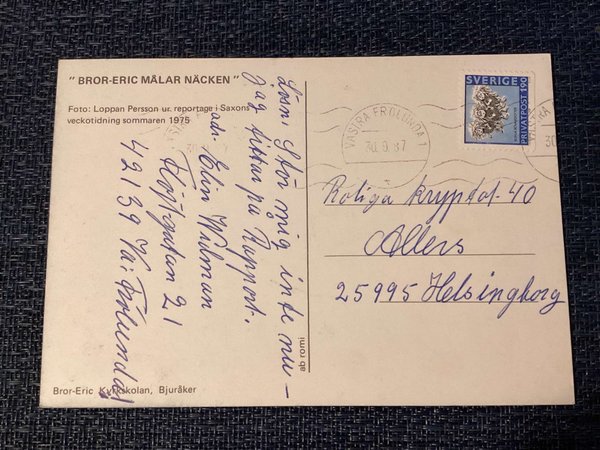 " BROR-ERIC MÅLAR NÄCKEN "
Foto: Loppan Persson ur. reportage i Saxons
veckotidning sommaren 1975
Lösn: Stör mig inte nu –
jag tittar på Rapport.
adr. Elin Wilman
Höjtgatan 21
42139 Vä: Frölunda
Bror-Eric Kyrkskolan, Bjuråker
ab romi
SVERIGE
PRIVATPOST 190
VÄSTRA FRÖLUNDA 1
30.9.87
Roliga kryptot-40
Allers
25995 Helsingborg